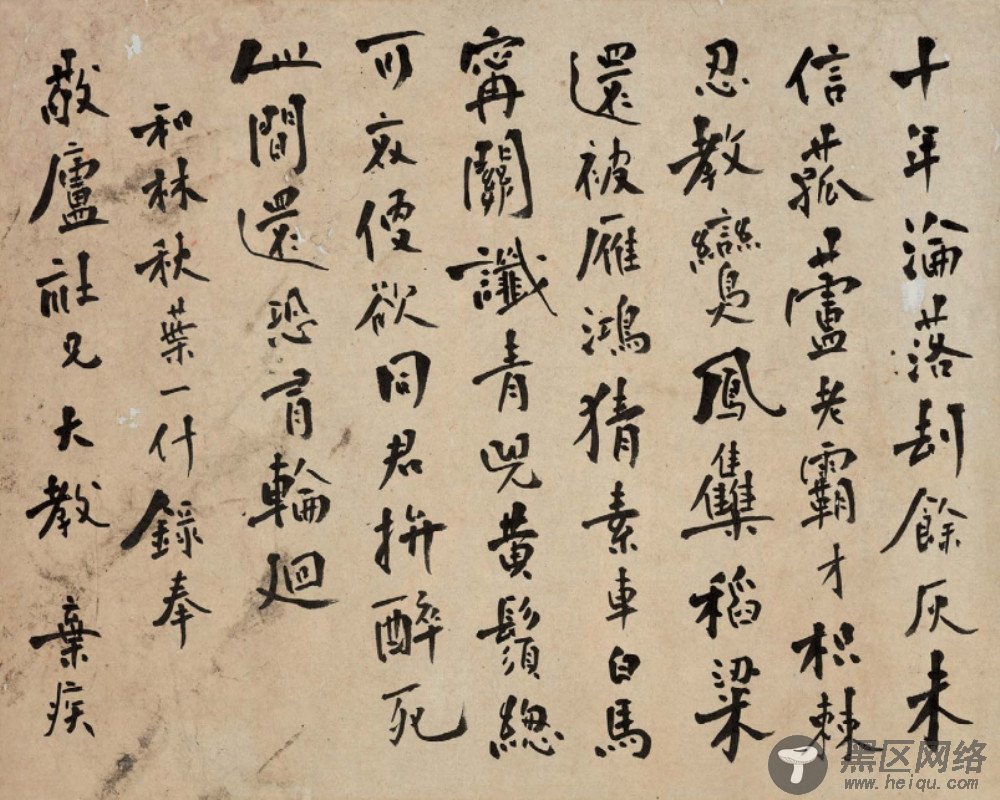 十年淪落刦餘灰未
信菰蘆老霸才枳棘
忍教鸞鳳集稻粱
還被雁鴻猜素車白馬
甯關讖青兕黃鬚總
可哀便欲同君拚醉死
間還恐有輪迴
和林秋葉一什錄奉
敬廬社兄大教 棄疾
黑区网络
www.heiqu.com